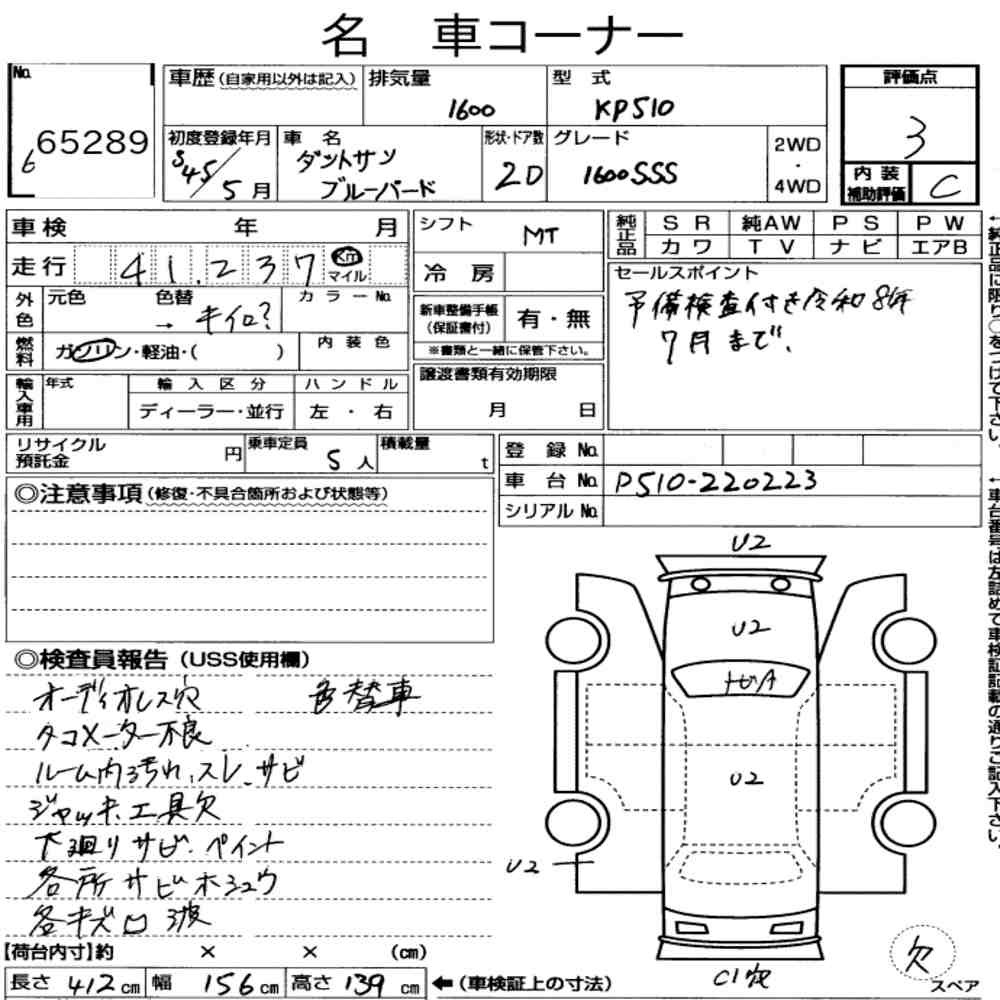 名 車コーナー
No. 65289
6
車歴 (自家用以外は記入)
排気量 1600
型 式 KP510
評価点 3
初度登録年月 S45/5月
車 名 ダットサン ブルーバード
形状・ドア数 2D
グレード 1600SSS
2WD ・ 4WD
内 装 補助評価 C
車検 年 月
走行 41,237 Km マイル
外色 元色 色替 → キイロ? カラーNo.
燃料 ガソリン・軽油・( ) 内装色
輸入車用 年式 輸入区分 ディーラー・並行 ハンドル 左・右
シフト MT
冷 房
新車整備手帳 (保証書付) 有・無
※書類と一緒に保管下さい。
譲渡書類有効期限 月 日
純正品 SR 純AW PS PW
カワ TV ナビ エアB
セールスポイント
予備検査付き令和8年
7月まで.
←純正品に限り○をつけて下さい。
リサイクル預託金 円
乗車定員 5人
積載量 t
登 録 No.
車 台 No. P510-220223
シリアル No.
←車台番号は左詰めで車検証記載の通りご記入下さい。
◎注意事項 (修復・不具合箇所および状態等)
◎検査員報告 (USS使用欄)
オーディオレス穴 色替車
タコメーター不良
ルーム内汚れ、スレ、サビ
ジャッキ、工具欠
下廻りサビ・ペイント
各所サビホシュウ
各キズ凹波
U2
U2
トビA
U2
U2
C1穴
欠
スペア
【荷台内寸】約 × × (cm)
長さ 412 cm 幅 156 cm 高さ 139 cm ←(車検証上の寸法)